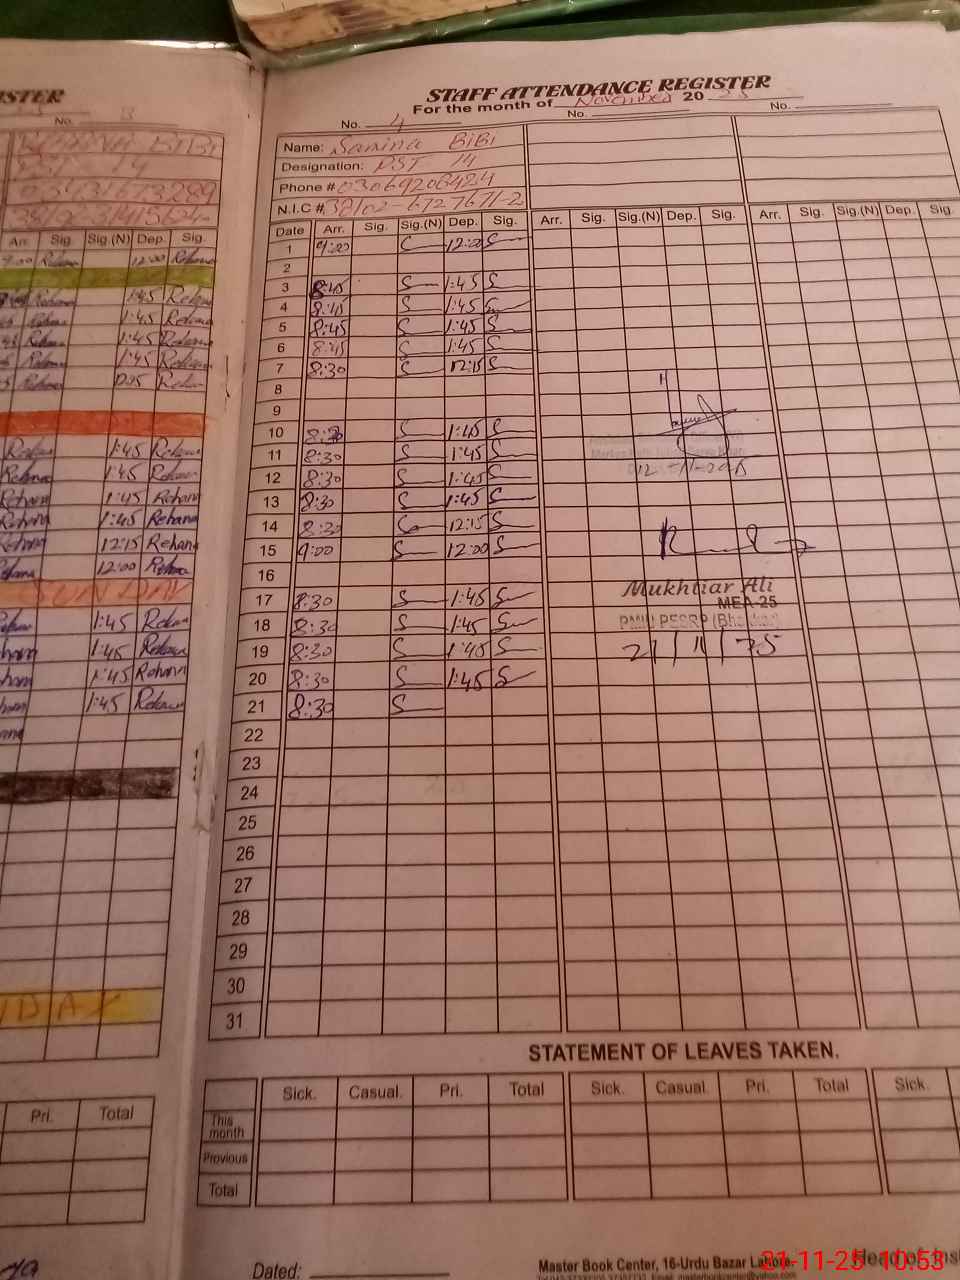 ISTER
No. 3
PST 14
03431673289
Arr. Sig. Sig.(N) Dep. Sig.
9:00 Rehana 12:00 Rehana
1:45 Rehana
1:45 Rehana
1:45 Rehana
1:45 Rehana
Rehana
Rehana 1:45 Rehana
Rehana 1:45 Rehana
Rehana 1:45 Rehana
Rehana 1:45 Rehana
Rehana 12:15 Rehana
Rehana 12:00 Rehana
SUNDAY
1:45 Rehana
1:45 Rehana
1:45 Rehana
1:45 Rehana
NDAY
Pri. Total
STAFF ATTENDANCE REGISTER
For the month of November 20 25
No. 4 No. No.
Name: Samina BiBi
Designation: PST 14
Phone # 03069206424
N.I.C # 38102-6727671-2
Date Arr. Sig. Sig.(N) Dep. Sig. Arr. Sig. Sig.(N) Dep. Sig. Arr. Sig. Sig.(N) Dep. Sig.
1 9:00 S 12:00 S
2
3 8:45 S 1:45 S
4 8:45 S 1:45 S
5 8:45 S 1:45 S
6 8:45 S 1:45 S
7 8:30 S 12:15 S
8
9
10 8:30 S 1:45 S
11 8:30 S 1:45 S
12 8:30 S 1:45 S
13 8:30 S 1:45 S
14 8:30 S 12:15 S
15 9:00 S 12:00 S
16
17 8:30 S 1:45 S
18 8:30 S 1:45 S
19 8:30 S 1:45 S
20 8:30 S 1:45 S
21 8:30 S
22
23
24
25
26
27
28
29
30
31
Mukhtiar Ali
MEA-25
PMIU PESRP (Bhakkar)
21/11/25
STATEMENT OF LEAVES TAKEN.
Sick. Casual. Pri. Total Sick. Casual. Pri. Total Sick.
This month
Provious
Total
Dated:
Master Book Center, 16-Urdu Bazar Lahore
Head of Ins
21-11-25 10:53